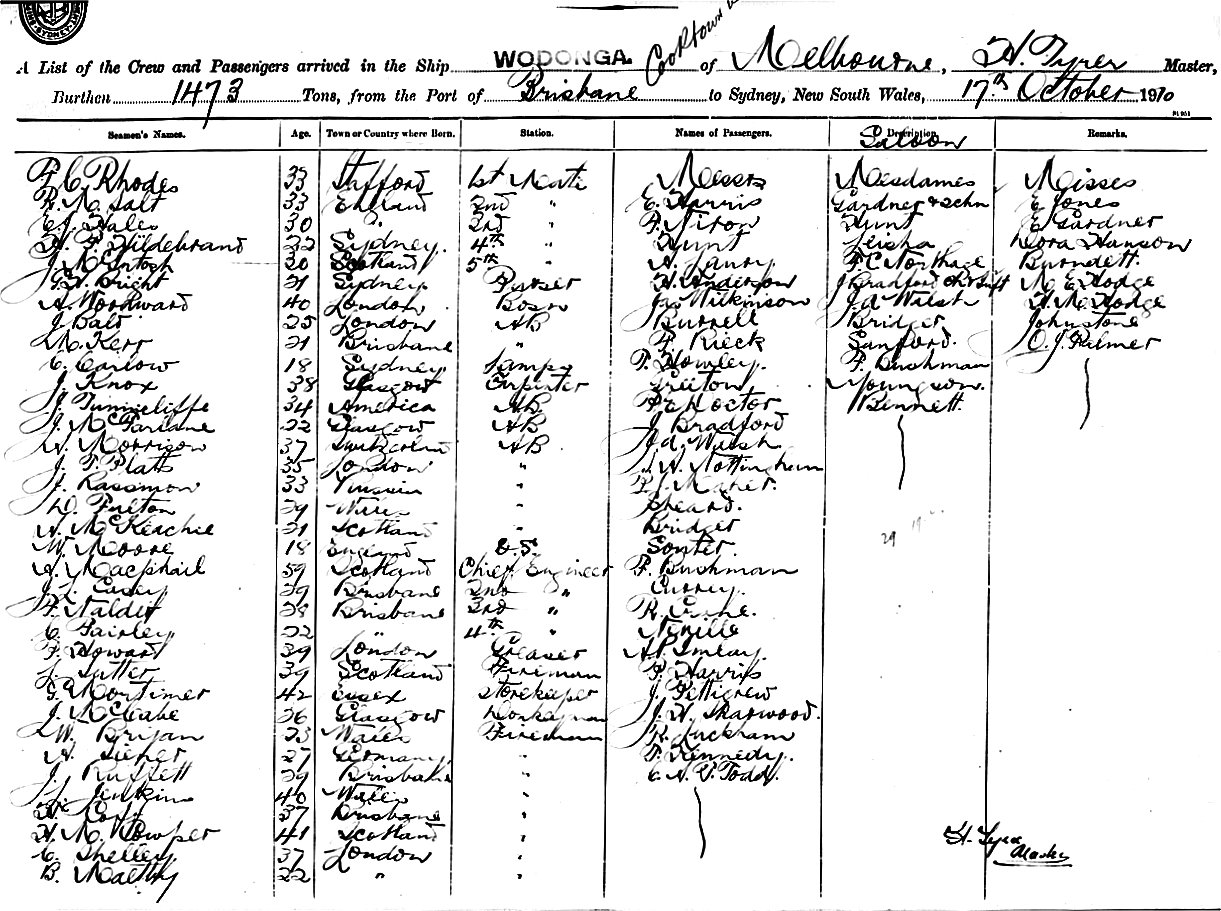 SYDNEY
Cooktown
A List of the Crew and Passengers arrived in the Ship WODONGA of Melbourne, H. Tyrer Master,
Burthen 1473 Tons, from the Port of Brisbane to Sydney, New South Wales, 17th October 1910
Seamen's Names. Age. Town or Country where Born. Station. Names of Passengers. Description Saloon Remarks.
Rhodes 33 Stafford 1st Mate Messrs Mesdames Misses
Salt 33 England 2nd " E. Harris Gardner & Schn E Jones
Hales 30 " 3rd " Nixon Hunt E Gardner
Hildebrand 32 Sydney. 4th " Hunt Dora Hanson
J. McIntosh 20 Scotland 5th " A. Laury F C Northage Burndett.
Bright 21 Sydney Purser H. Anderson J Bradford M. E. Hodge
A. Woodward 40 London Bosn Jas Wilkinson J. A. Walsh H. M. Hodge
J. Balt 25 London AB Burrell Bridger Johnstone
M. Kerr 21 Brisbane " F. Rieck Sanford. O. J. Palmer
C. Carlow 18 Sydney Lamps F. Howley. F. Bushman
J. Knox 38 Glasgow Carpenter Greeton, Youngson.
J. Tunnicliffe 34 America AB Hoctor Bennett.
J. McFarlane 22 Glasgow AB J. Bradford
A. Morrison 37 AB J. A. Walsh
J. F. Platts 35 London " Nottingham
J. Rassmon 33 Russia " Maher.
D. Fulton 29 Wales " Sheard.
A. McKeachie 21 Scotland " Bridger
W. Moore 18 England O.S. Souter.
A. Macphail 59 Scotland Chief Engineer F. Bushman
J. Casey 29 Brisbane 2nd " Currey.
Naldet 28 Brisbane 3rd " R. Crane.
C. Fairley 22 " 4th " Neville
F. Howard 39 London Greaser Imlay.
J. Sutter 39 Scotland Fireman F. Harris
G. Mortimer 42 Essex Storekeeper J. Pettigrew
J. McCleabe 26 Glasgow Donkeyman J. H. Sharwood.
W. Bryan 23 Wales Fireman R. Luckham
A. Sieher 27 Germany " F. Kennedy.
J. Russett 29 Brisbane " C. A. V. Todd.
J. Jenkins 40 Wales "
37 Brisbane "
H. M. Cowper 41 Scotland "
C. Shelley. 37 London "
B. Maltby 22 " "
29
H. Tyrer
Master